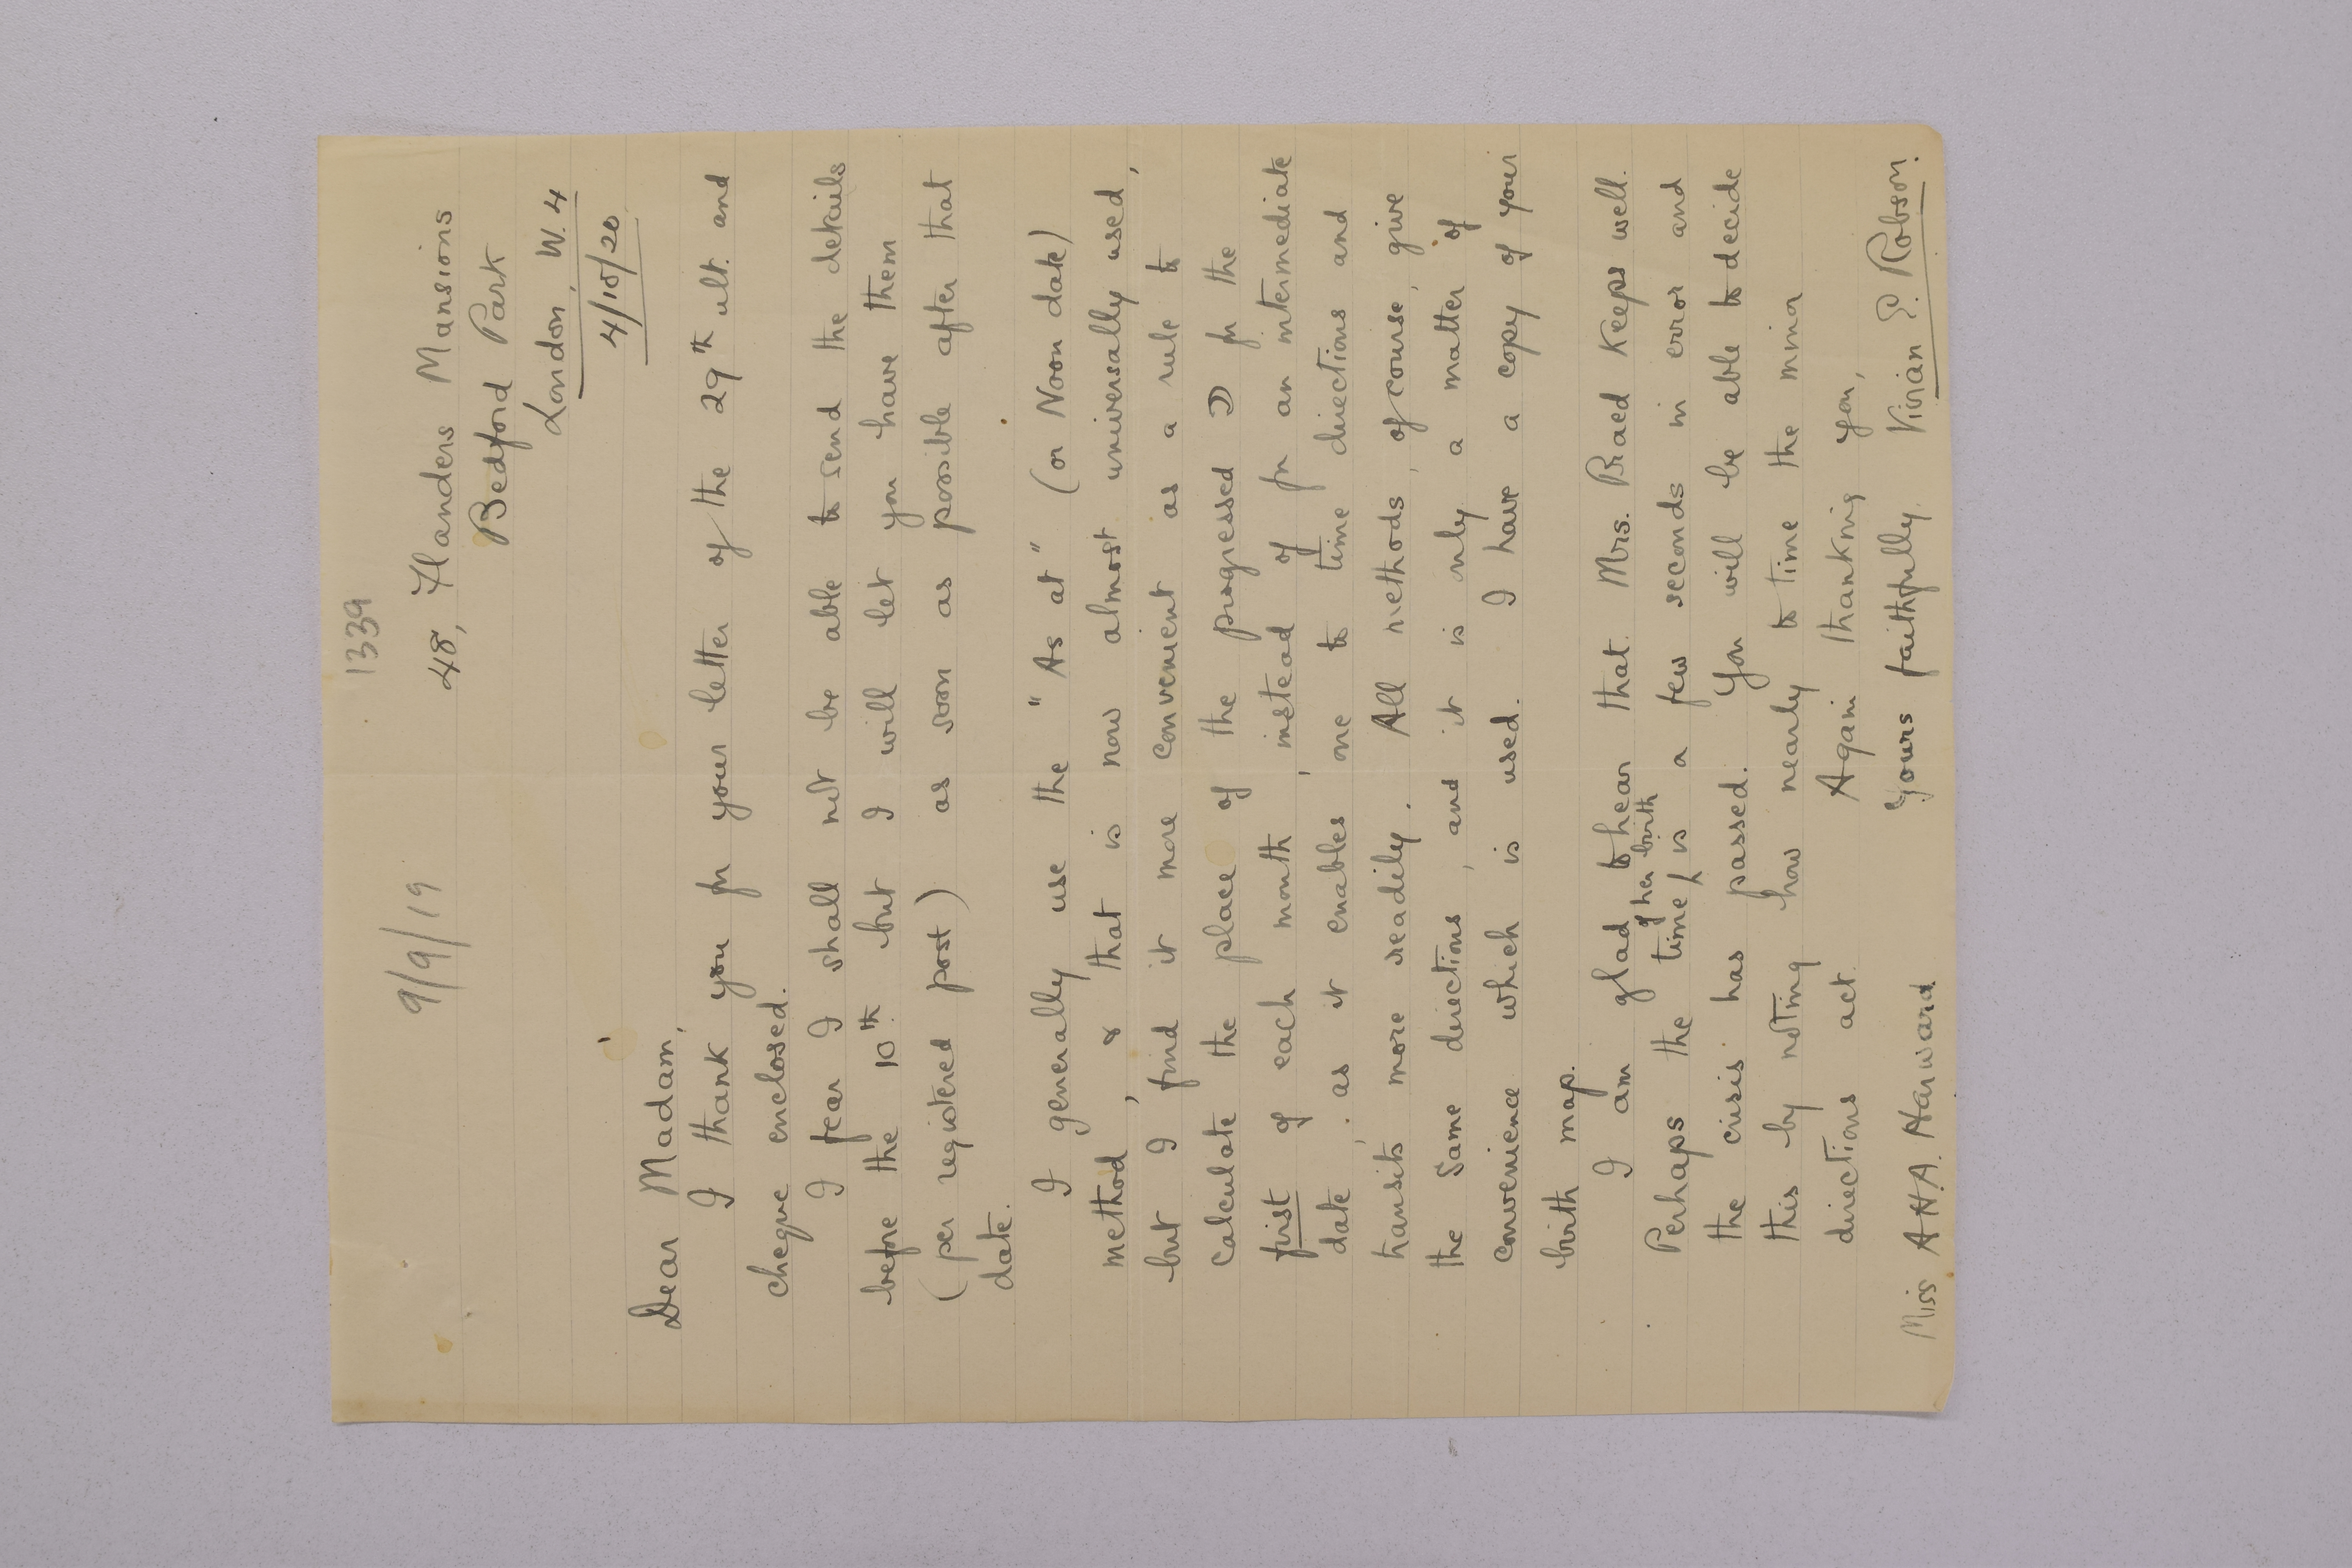 1339
9/9/19
48, Flanders Mansions
Bedford Park
London, W.4
4/10/20
Dear Madam,
I thank you for your letter of the 29th ult. and
cheque enclosed.
I fear I shall not be able to send the details
before the 10th but I will let you have them
(per registered post) as soon as possible after that
date.
I generally use the "As at" (or Noon date)
method, & that is now almost universally used,
but I find it more convenient as a rule to
calculate the place of the progressed ☽ for the
first of each month, instead of for an intermediate
date, as it enables one to time directions and
transits more readily. All methods, of course, give
the same directions, and it is only a matter of
convenience which is used. I have a copy of your
birth map.
I am glad to hear that Mrs. Praed keeps well.
of her birth
Perhaps the time ʌ is a few seconds in error and
the crisis has passed. You will be able to decide
this by noting how nearly to time the minor
directions act.
Again thanking you,
Yours faithfully
Miss A.H.A. Harward Vivian E. Robson.